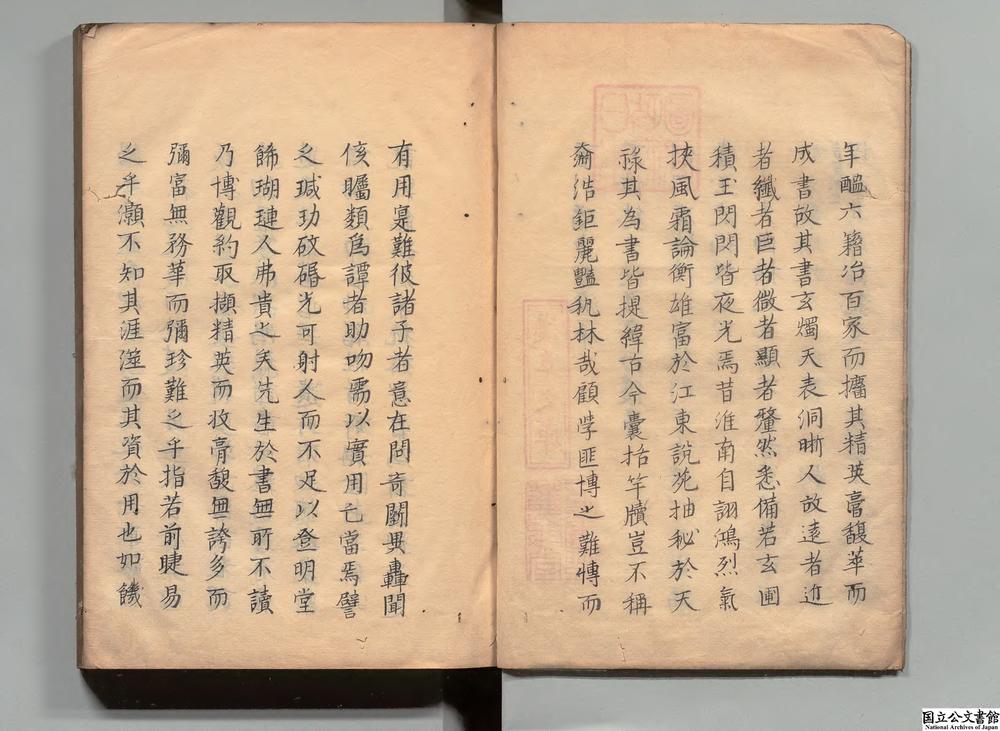 年醞六籍冶百家而攟其精英膏馥華而
成書故其書玄燭天表洞晰人故遠者近
者纖者巨者微者顯者釐然悉備若玄圃
積玉閃閃皆夜光焉昔淮南自詡鴻烈氣
挾風霜論衡雄富於江東說苑抽秘於天
祿其為書皆提緯古今囊括竿牘豈不稱
奫浩鉅麗豔秇林哉顧學匪博之難博而
有用寔難彼諸子者意在問奇闢異轟聞
侅矚類爲譚者助吻需以實用亡當焉譬
之瑊玏砇碈光可射人而不足以登明堂
餙瑚璉人弗貴之矣先生於書無所不讀
乃博觀約取擷精英而收膏馥無誇多而
彌富無務華而彌珍難之乎指若前睫易
之乎灝不知其涯澨而其資於用也如饑
国立公文書館
National Archives of Japan